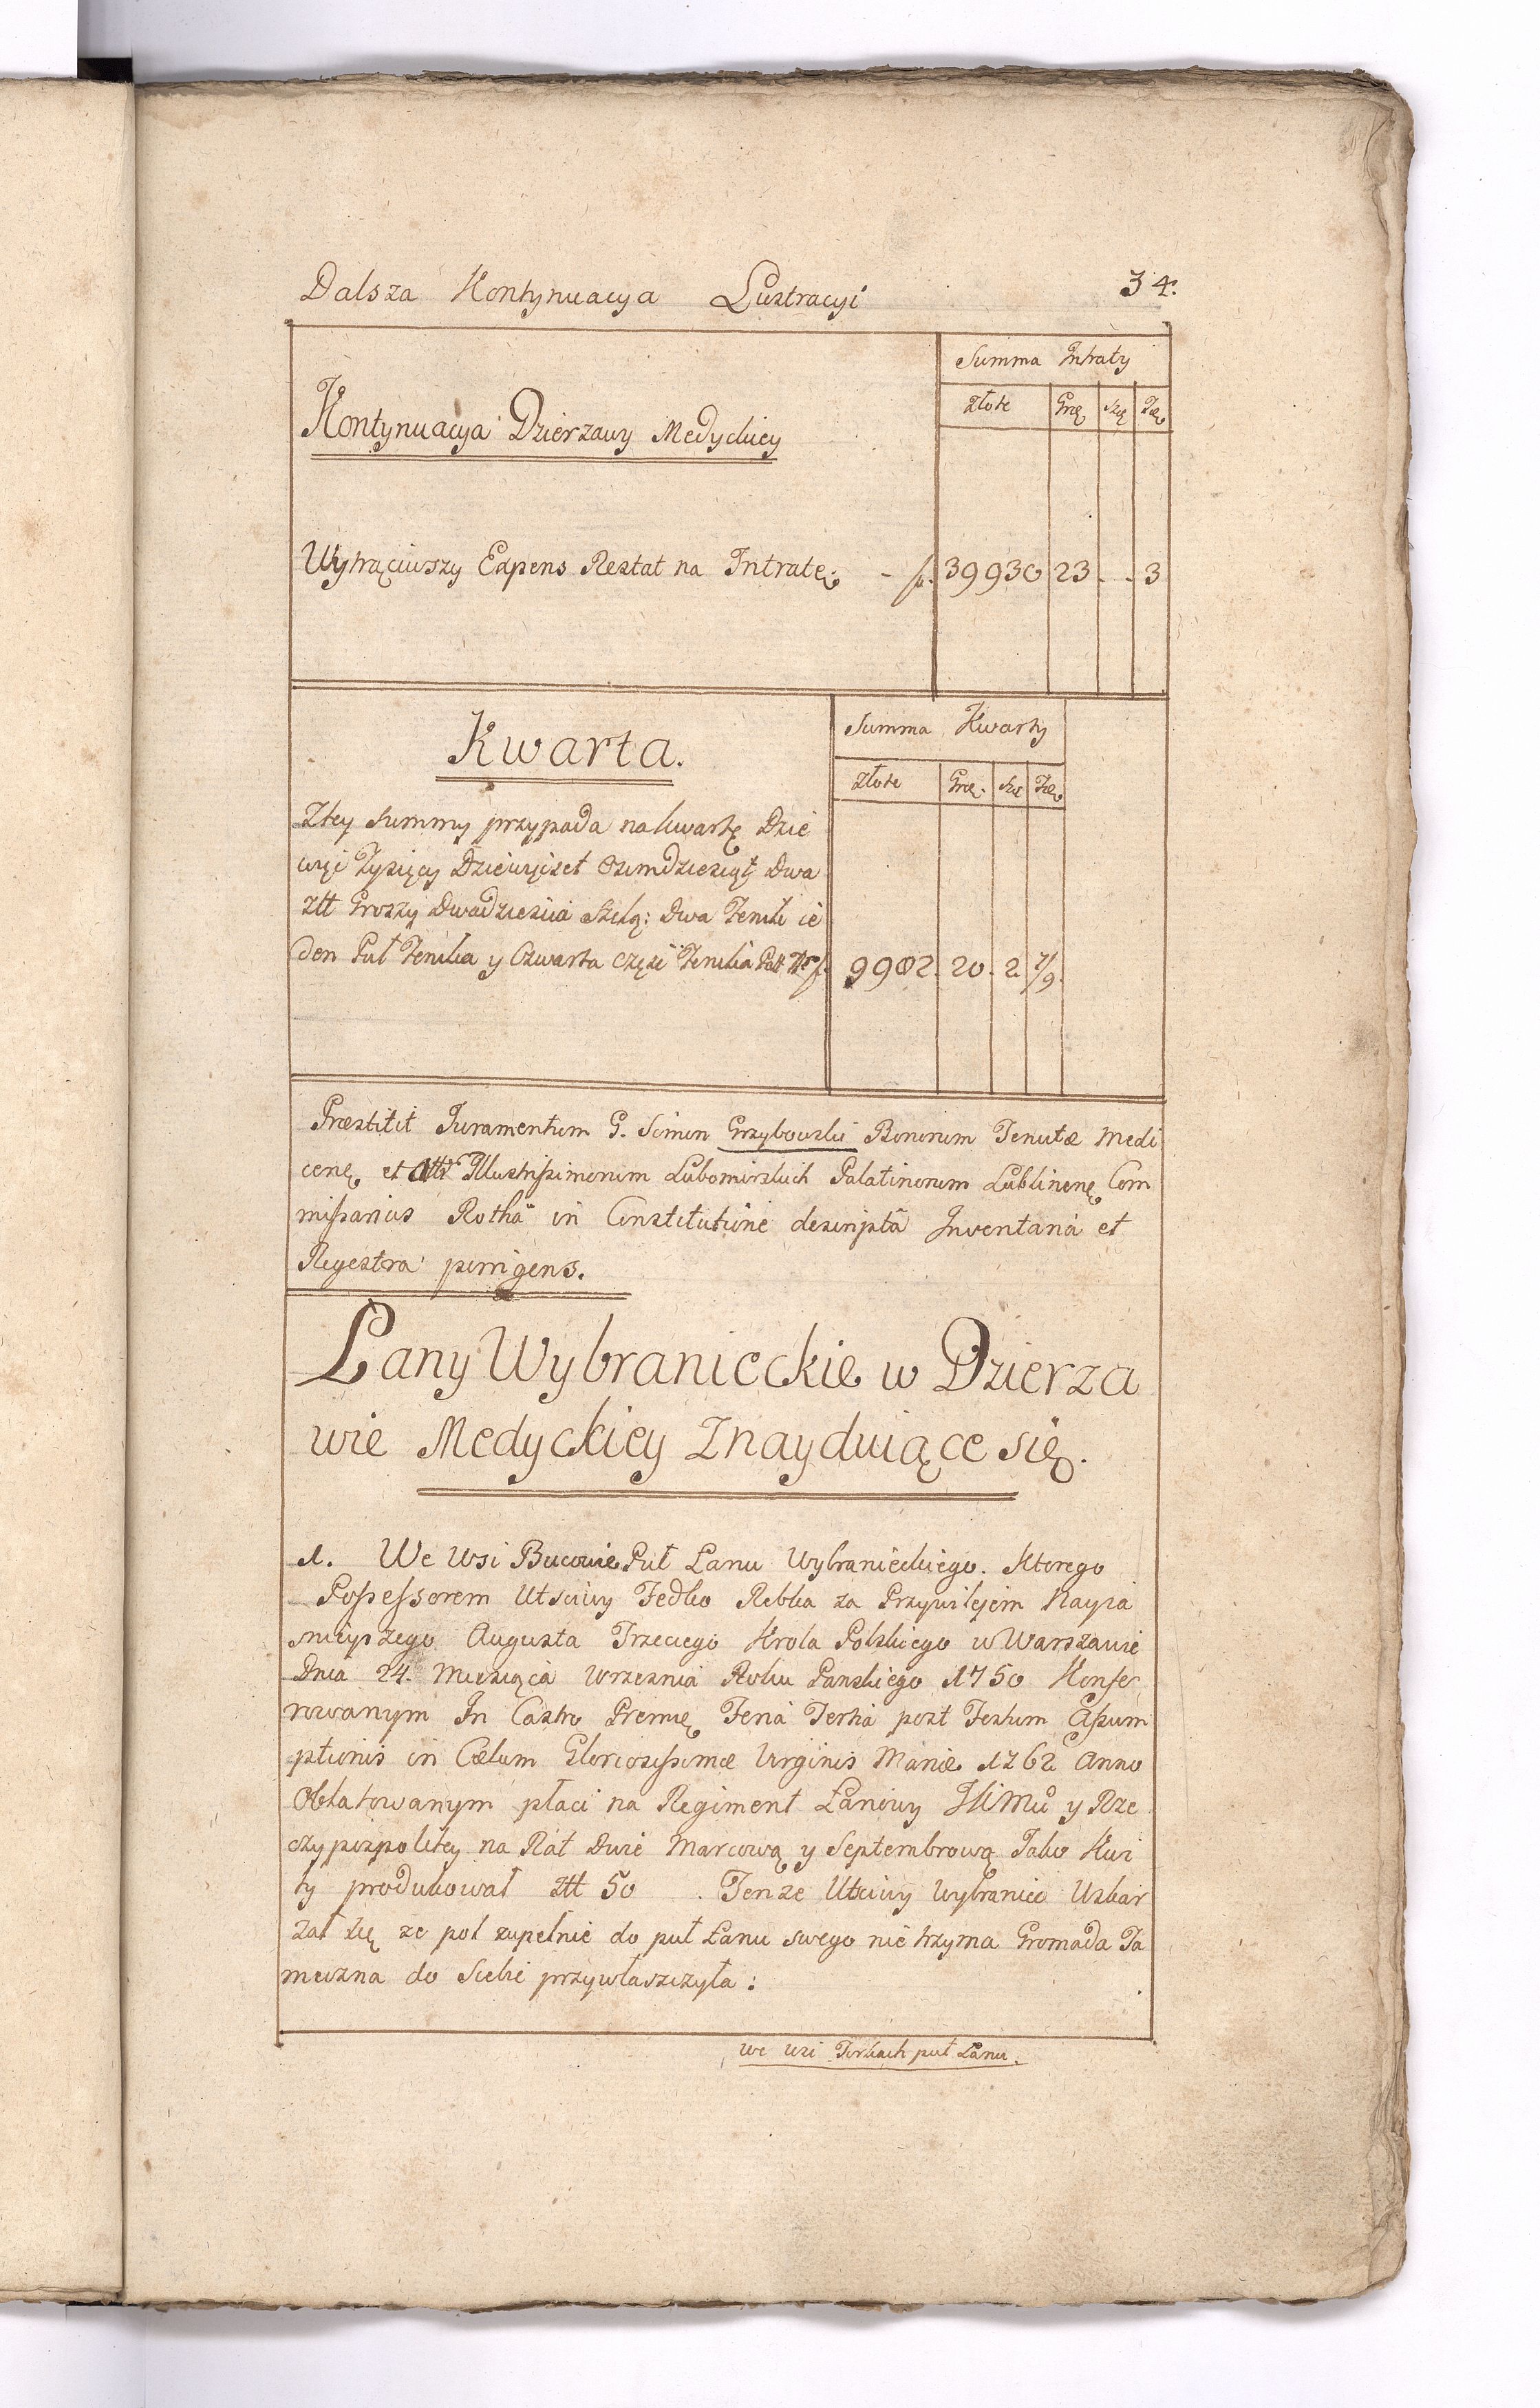 Dalsza Kontynuacya Lustracyi 34.
Summa Intraty
Złote Grę Szę Dzę
Kontynuacya Dzierzawy Medyckiey
Wytrąciwszy Expens Restat na Intratę. - f. 39930 23 - - 3
Kwarta.
Summa Kwarty
Złote Grę. Szę Dzę
Ztey summy przypada na kwartę Dzie
więć Tysięcy Dziewięset Osmdziesiąt Dwa
Złł Groszy Dwadziescia Szelą: Dwa Fenik ie
den Puł Fenika y Czwarta część Fenika f. 9982. 20. 2
Præstitit Juramentum G. Simon Grzybowski Bonorum Tenutæ Medi
cenę, et Illustrissimorum Lubomirskich Palatinorum Lublinenę Com
missarius Rothâ in Constitutione descriptâ Inventaria et
Regestra porrigens.
Łany Wybranieckie w Dzierza
wie Medyckiey Znayduiące się.
1. We Wsi Bucowie Puł Łanu Wybranieckiego. Ktorego
Possessorem Utsciwy Fedko Rebka za Przywilejem Nayia
snieyszego Augusta Trzeciego Krola Polskiego w Warszawie
Dnia 24. Miesiąca Wrzesnia Roku Panskiego 1750 Konfe
rowanym In Castro Premię Feria Tertia post Festum Assum
ptionis in Cælum Gloriosissimæ Virginis Mariæ 1762 Anno
Oblatowanym płaci na Regiment Łanowy JKMći y Rze
czypospolitey na Rat Dwie Marcową y Septembrową Jako Kwi
ty produkował Złł 50 . Tenze Utsciwy Wybraniec Uskar
zał się ze pol zupełnie do puł Łanu swego nie trzyma Gromada Ta
meczna do Siebie przywłaszczyła:
We Wsi Torkach puł Łanu.